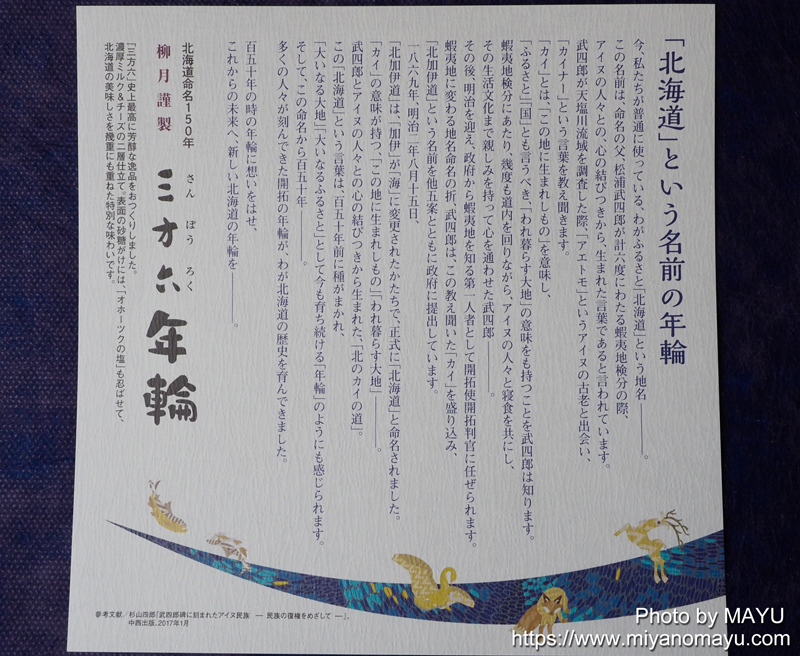 「北海道」という名前の年輪
今、私たちが普通に使っている、わがふるさと「北海道」という地名───。
この名前は、命名の父、松浦武四郎が計六度にわたる蝦夷地検分の際、
アイヌの人々との、心の結びつきから、生まれた言葉であると言われています。
武四郎が天塩川流域を調査した際、「アエトモ」というアイヌの古老と出会い、
「カイナー」という言葉を教え聞きます。
「カイ」とは、「この地に生まれしもの」を意味し、
「ふるさと」「国」とも言うべき、「われ暮らす大地」の意味をも持つことを武四郎は知ります。
蝦夷地検分にあたり、幾度も道内を回りながら、アイヌの人々と寝食を共にし、
その生活文化まで親しみを持って心を通わせた武四郎───。
その後、明治を迎え、政府から蝦夷地を知る第一人者として開拓使開拓判官に任ぜられます。
蝦夷地に変わる地名命名の折、武四郎は、この教え聞いた「カイ」を盛り込み、
「北加伊道」という名前を他五案とともに政府に提出しています。
一八六九年、明治二年八月十五日、
「北加伊道」は、「加伊」が「海」に変更されたかたちで、正式に「北海道」と命名されました。
「カイ」の意味が持つ、「この地に生まれしもの」「われ暮らす大地」───。
武四郎とアイヌの人々との心の結びつきから生まれた、「北のカイの道」。
この「北海道」という言葉は、百五十年前に種がまかれ、
「大いなる大地」「大いなるふるさと」として今も育ち続ける「年輪」のようにも感じられます。
そして、この命名から百五十年───。
多くの人々が刻んできた開拓の年輪が、わが北海道の歴史を育んできました。
百五十年の時の年輪に想いをはせ、
これからの未来へ、新しい北海道の年輪を───。
北海道命名150年
柳月謹製
さん ぽう ろく
三方六年輪
「三方六」史上最高に芳醇な逸品をおつくりしました。
濃厚ミルク&チーズの二層仕立て。表面の砂糖がけには、「オホーツクの塩」も忍ばせて、
北海道の美味しさを幾重にも重ねた特別な味わいです。
参考文献／杉山四郎『武四郎碑に刻まれたアイヌ民族 ― 民族の復権をめざして ―』、
中西出版、2017年1月
Photo by MAYU
https://www.miyanomayu.com